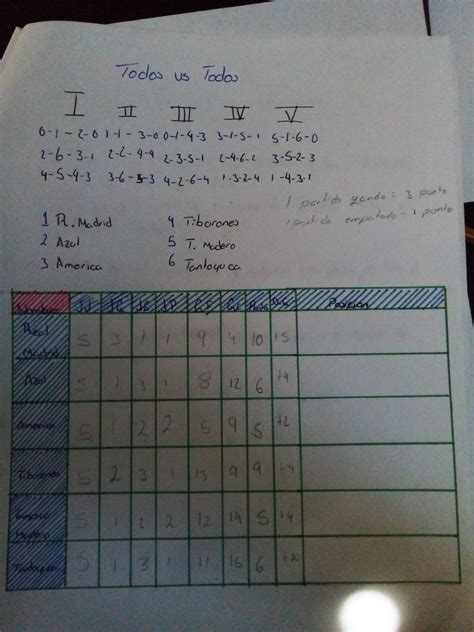 Todos vs Todos
I II III IV V
0-1-2-0 1-1-3-0 0-1-4-3 3-1-5-1 5-1-6-0
2-6-3-1 2-2-4-4 2-3-5-1 2-4-6-2 3-5-2-3
4-5-4-3 3-6-5-3 4-2-6-4 1-3-2-4 1-4-3-2
1 partido ganado = 3 punto
1 partido empatado - 1 punto
1 R. Madrid 4 Tiburones
2 Azul 5 T. Madero
3 America 6 Tantoyuca
Nombre JJ JG JE JP Posicion
Real Madrid 5 3 1 1 9 4 10 +5
Azul 5 1 3 1 8 12 6 +4
America 5 1 2 2 5 9 5 +2
Tiburones 5 2 3 1 13 9 9 +4
Madero 5 1 2 2 12 14 5 +4
Tantoyuca 5 1 3 1 11 15 6 +2